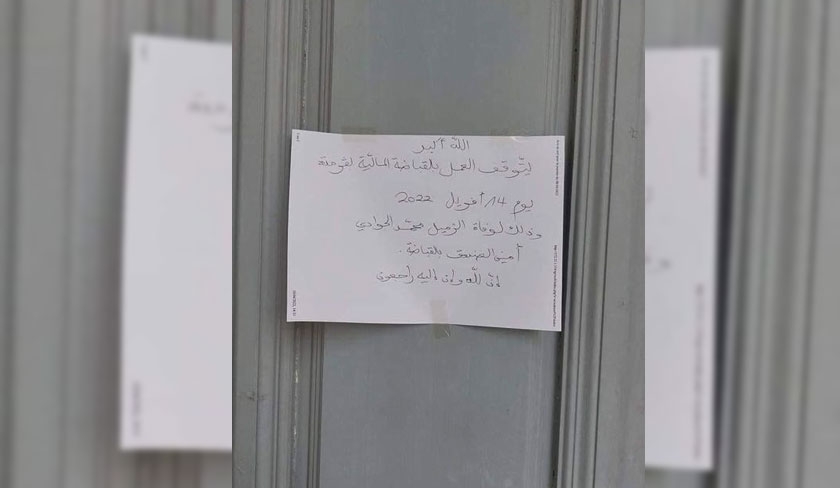 الله أكبر
يتوقف العمل بالقباضة المالية بقوحدة
يوم 14 أفريل 2022
وذلك لوفاة الزميل محمد الحوادي
أمين الصندوق بالقباضة.
إنا لله وإن إليه راجعون